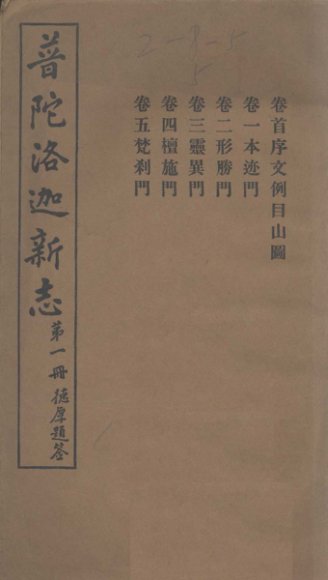 卷首序文例目山圖
卷一本迹門
卷二形勝門
卷三靈異門
卷四檀施門
卷五梵刹門
普陀洛迦新志
第一册 德厚題簽